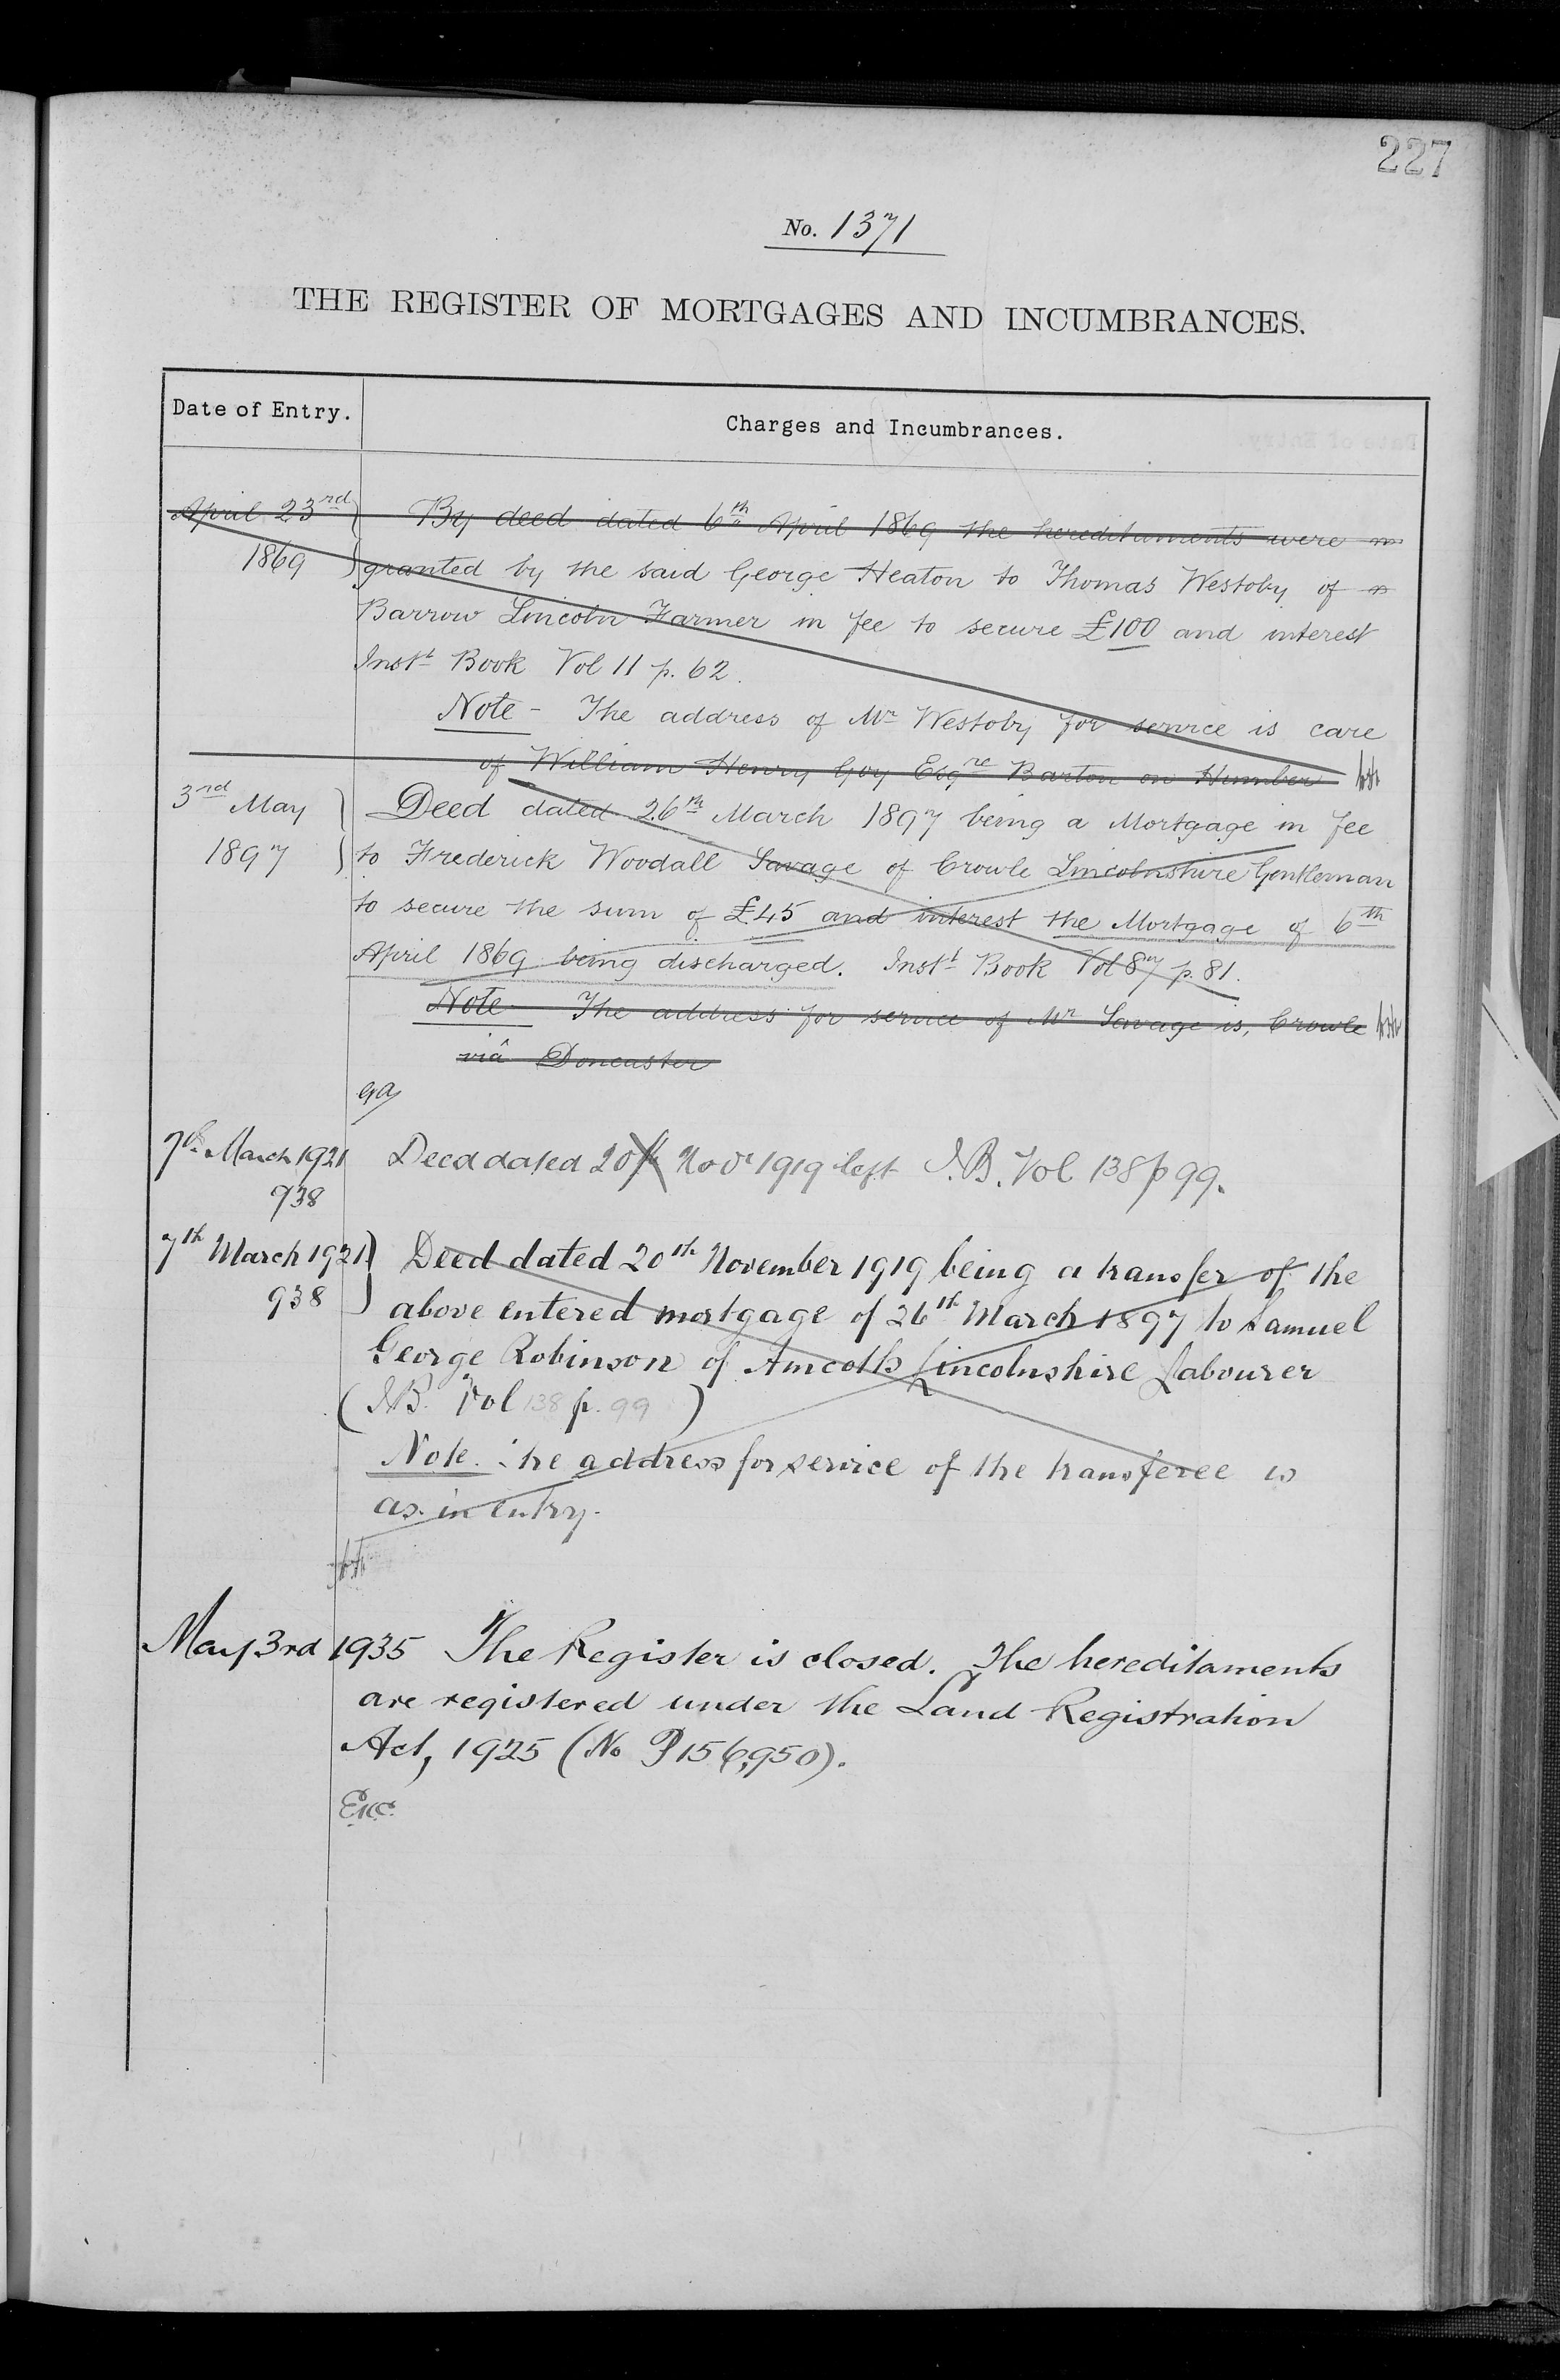 227
No. 1371
THE REGISTER OF MORTGAGES AND INCUMBRANCES.
Date of Entry.
Charges and Incumbrances.
April 23rd 1869
By deed dated 6th April 1869 the hereditaments were
granted by the said George Heaton to Thomas Westoby of
Barrow Lincoln Farmer in fee to secure £100 and interest
Instt Book Vol 11 p. 62.
Note - The address of Mr Westoby for service is care
of William Henry Goy Esqre Barton on Humber
3rd May 1897
Deed dated 26th March 1897 being a Mortgage in fee
to Frederick Woodall Savage of Crowle Lincolnshire Gentleman
to secure the sum of £45 and interest the Mortgage of 6th
April 1869 being discharged. Instt Book Vol 87 p. 81.
Note The address for service of Mr Savage is, Crowle
viâ Doncaster
7th March 1921
938
Deed dated 20th Novr 1919 left I.B. Vol 138 p 99.
7th March 1921
938
Deed dated 20th November 1919 being a transfer of the
above entered mortgage of 26th March 1897 to Samuel
George Robinson of Amcotts Lincolnshire Labourer
(I.B. Vol 138 p. 99)
Note. The address for service of the transferee is
as in entry.
May 3rd 1935 The Register is closed. The hereditaments
are registered under the Land Registration
Act, 1925 (No P156,950).